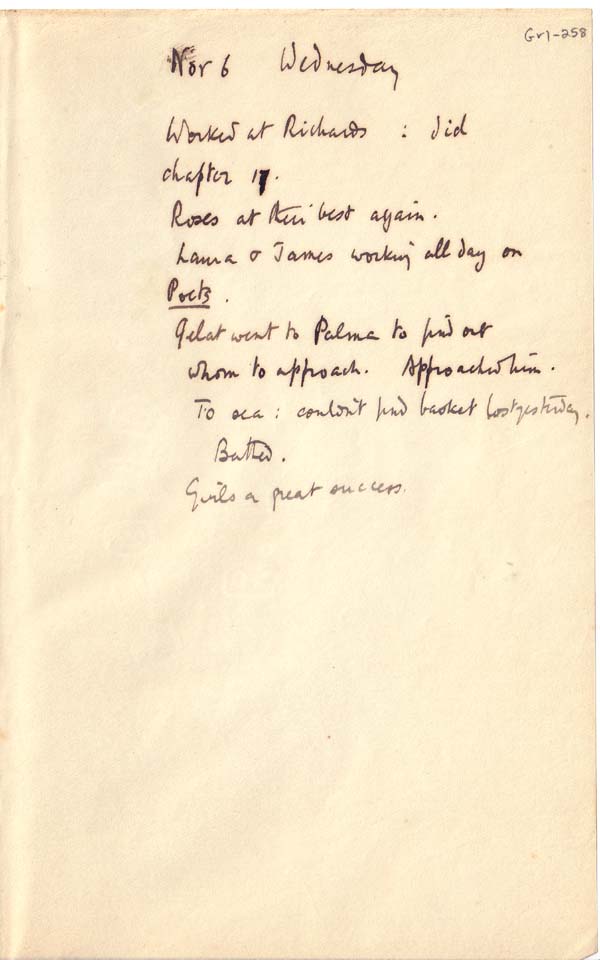 Gr1-258
Nov 6 Wednesday
Worked at Richards : did
chapter 17.
Roses at their best again.
Laura & James working all day on
Poets.
Gelat went to Palma to find out
whom to approach. Approached him.
To sea : couldn't find basket lost yesterday.
Bathed.
Girls a great success.